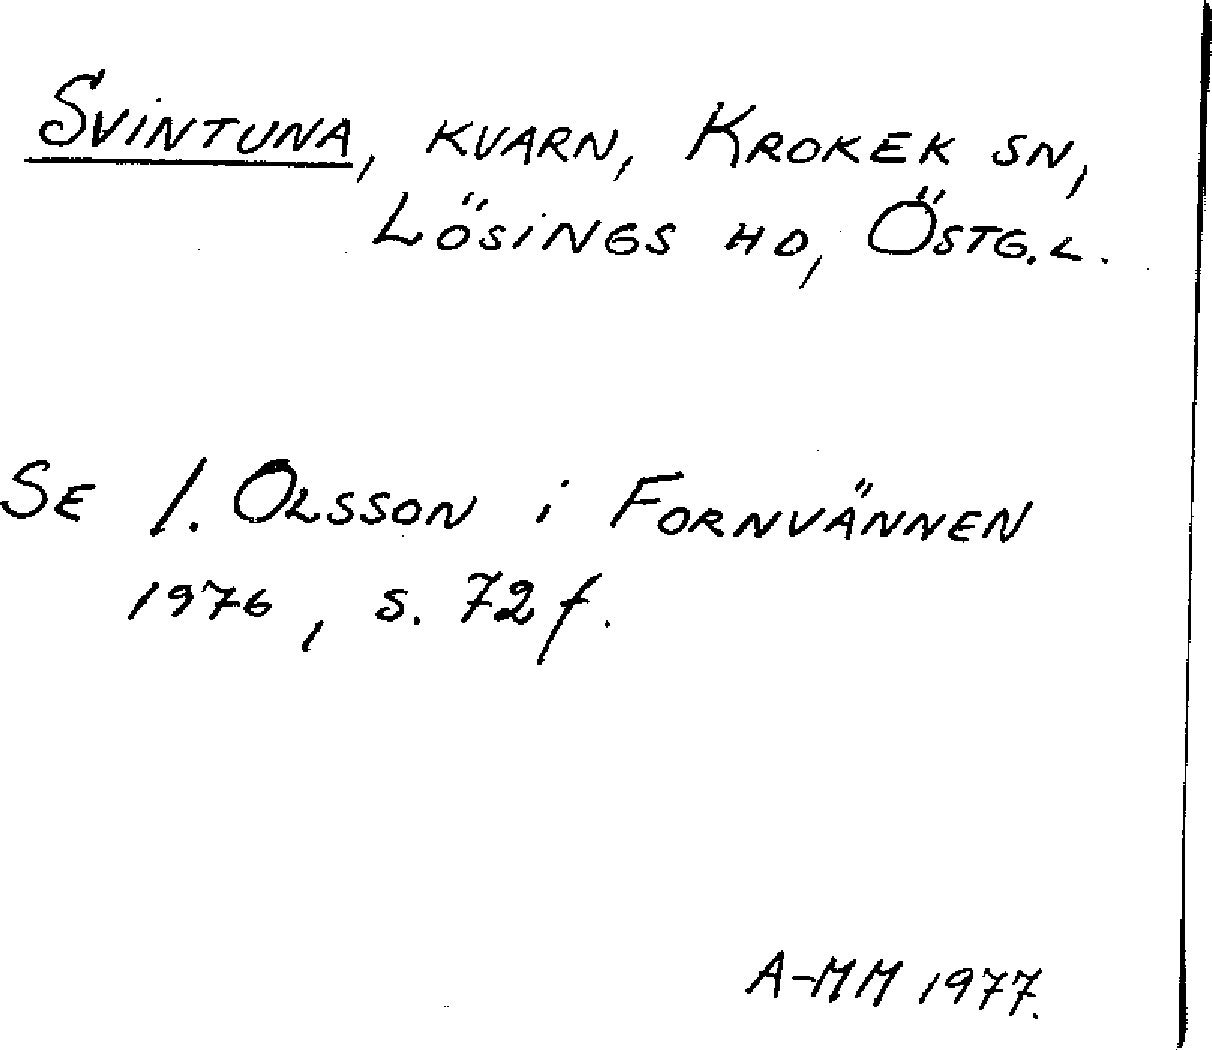 Svintuna, kvarn, Krokek sn,
Lösings hd, Östg.l.
Se I. Olsson i Fornvännen
1976, s. 72 f.
A-MM 1977.